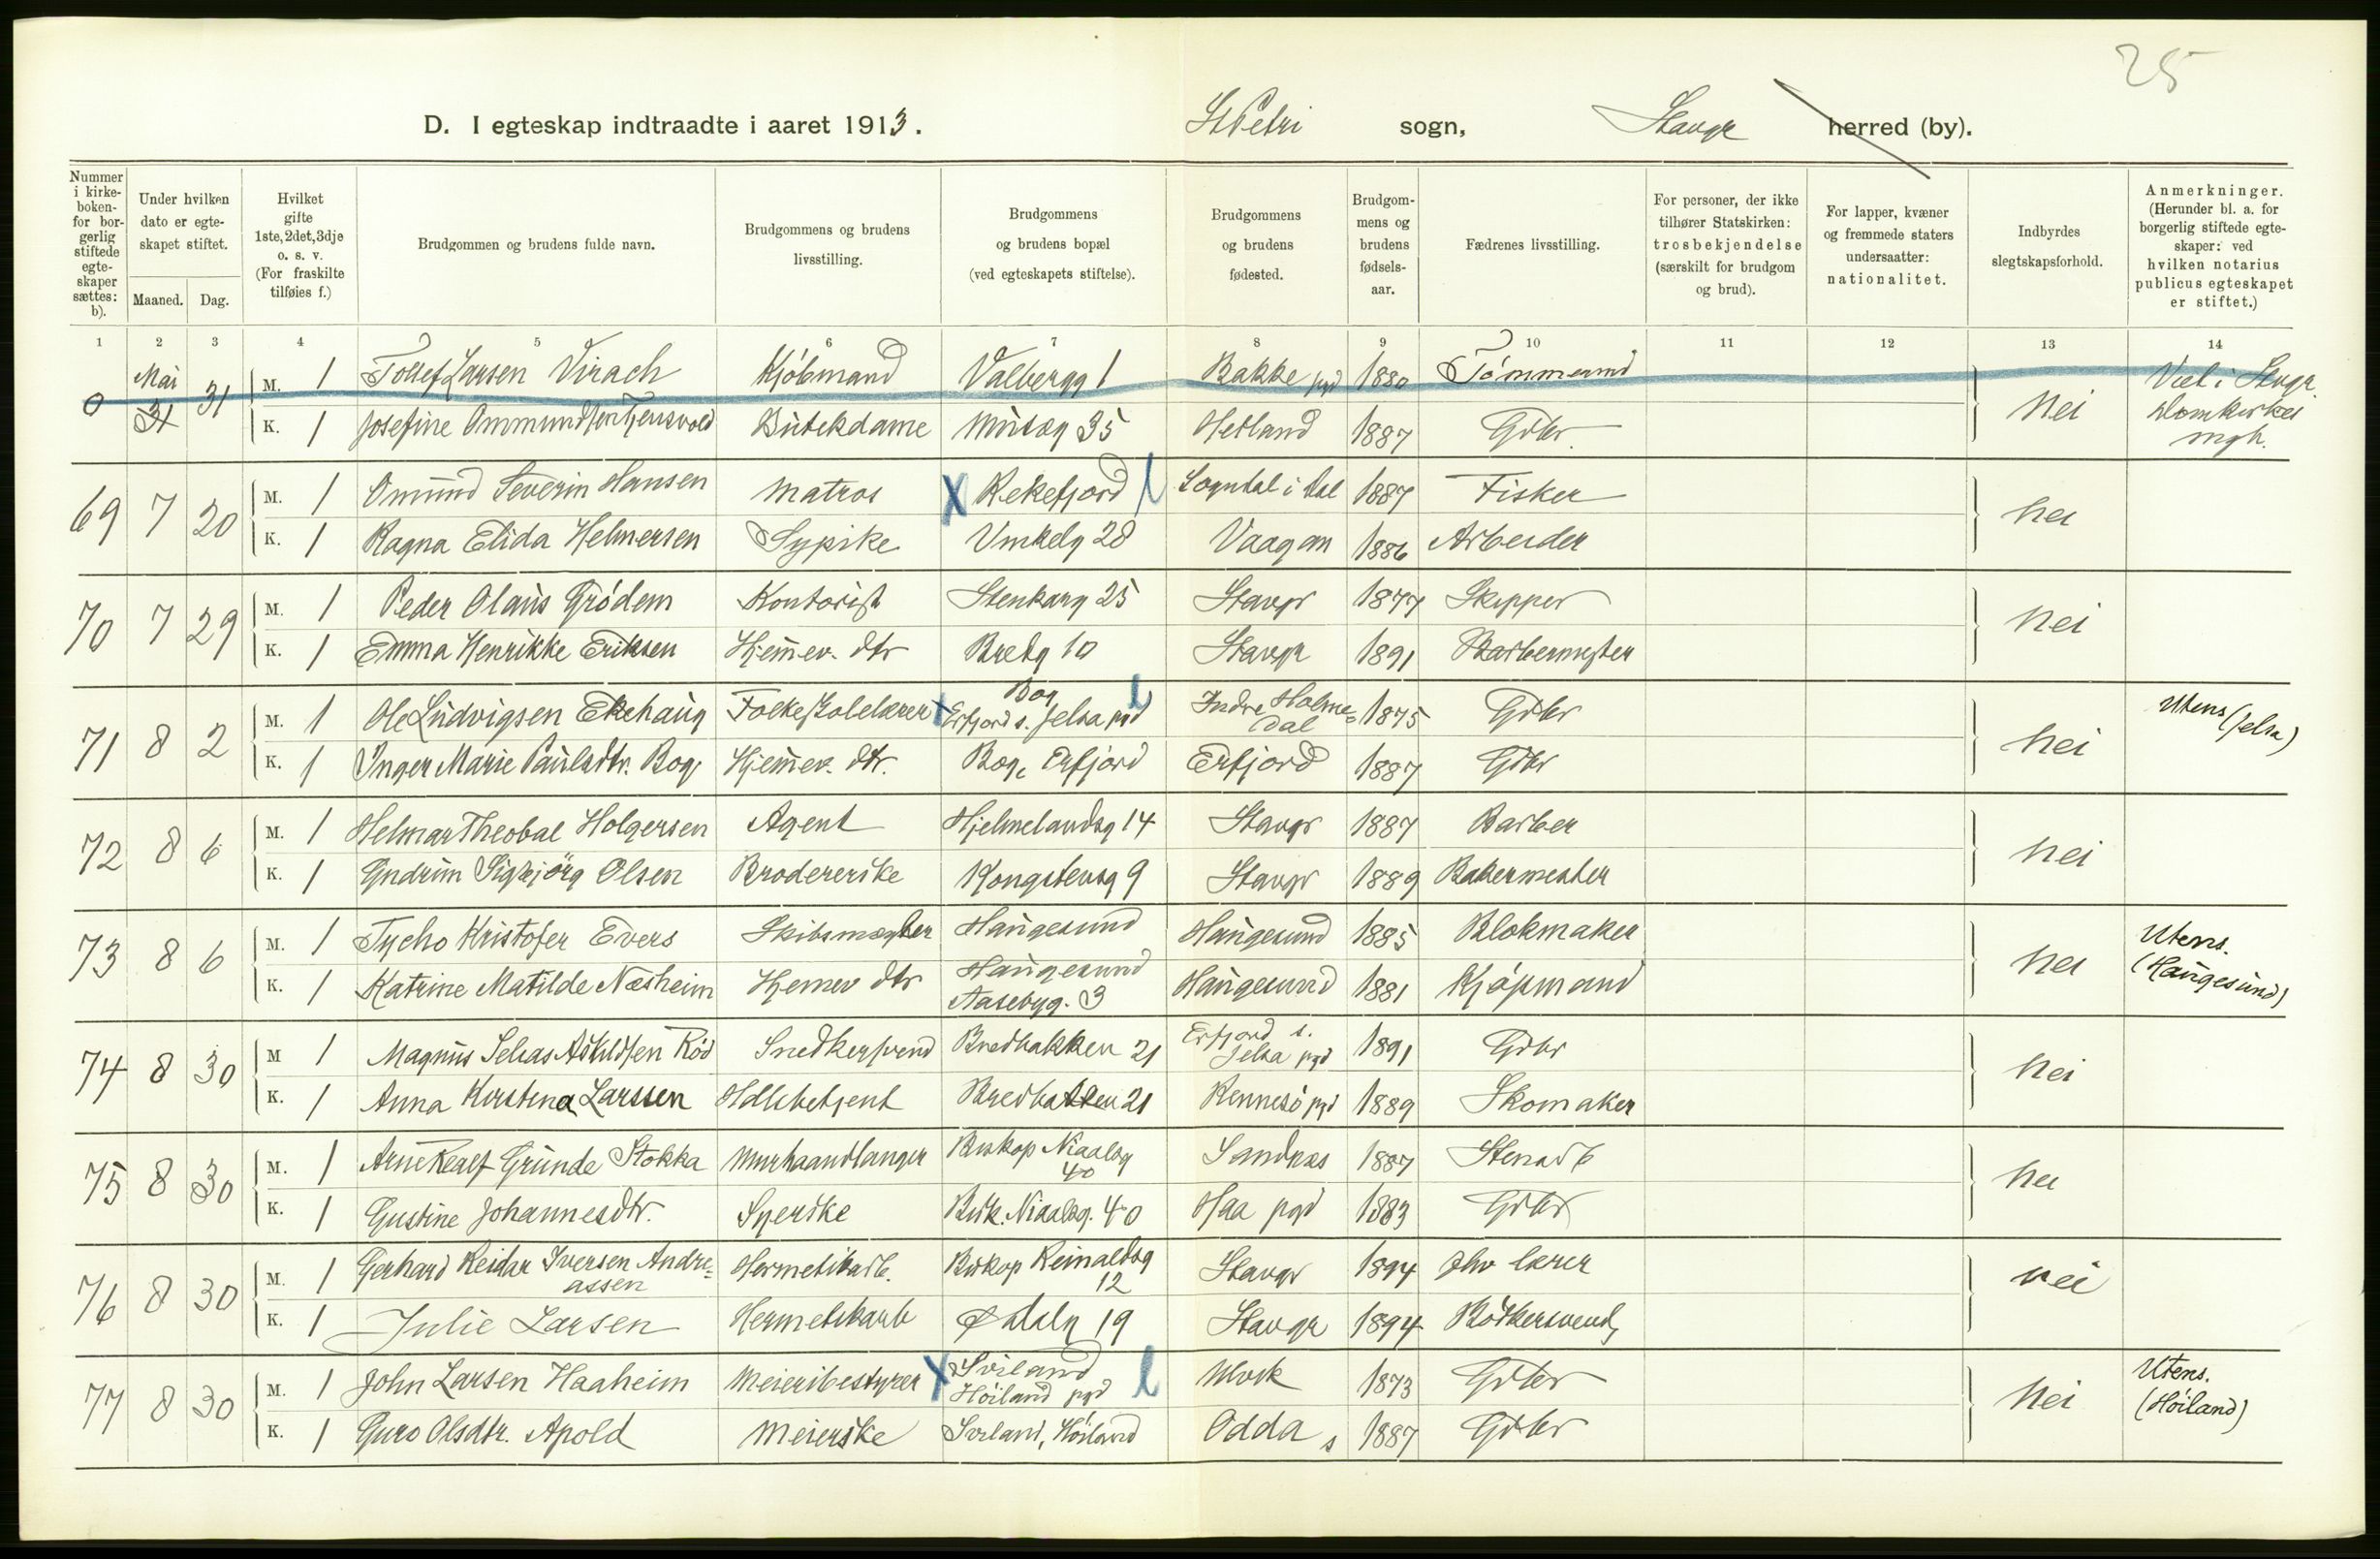 25
D. I egteskap indtraadte i aaret 1913. St Petri sogn, Stavgr herred (by).
Nummer i kirke-boken- for bor-gerlig stiftede egte-skaper sættes: b).
Under hvilken dato er egte-skapet stiftet.
Maaned. Dag.
Hvilket gifte 1ste, 2det, 3dje o. s. v. (For fraskilte tilføies f.)
Brudgommen og brudens fulde navn.
Brudgommens og brudens livsstilling.
Brudgommens og brudens bopæl (ved egteskapets stiftelse).
Brudgommens og brudens fødested.
Brudgom-mens og brudens fødsels-aar.
Fædrenes livsstilling.
For personer, der ikke tilhører Statskirken: trosbekjendelse (særskilt for brudgom og brud).
For lapper, kvæner og fremmede staters undersaatter: nationalitet.
Indbyrdes slegtskapsforhold.
Anmerkninger. (Herunder bl. a. for borgerlig stiftede egte-skaper: ved hvilken notarius publicus egteskapet er stiftet.)
1 2 3 4 5 6 7 8 9 10 11 12 13 14
0 Mai 31 31 M. 1 Tollef Larsen Virach Kjöbmand Valbergg 1 Bakke pgd 1880 Tömmermd nei Viet i Stavgr Domkirkes mgh.
K. 1 Josefine Ommundsen Tjensvold Butikdame Musæg 35 Hetland 1887 Gdbr.
69 7 20 M. 1 Omund Severin Hansen Matros X Rekefjord l Sogndal i Dal 1887 Fisker nei
K. 1 Ragna Elida Helmersen Sypike Vinkelg 28 Vaagan 1886 Arbeider
70 7 29 M. 1 Peder Olaus Grödem Kontorist Stenkarg 25 Stavgr 1877 Skipper nei
K. 1 Emma Henrikke Eriksen Hjemmev. dtr Bredg 10 Stavgr 1891 Barbermester
71 8 2 M. 1 Ole Ludvigsen Ekehaug Folkeskolelærer x Bog Erfjord s. Jelsa pgd l Indre Holmedal 1875 Gdbr nei Utens (Jelsa)
K. 1 Inger Marie Paulsdtr. Bog Hjemmev. dtr. Bog, Erfjord Erfjord 1887 Gdbr
72 8 6 M. 1 Helmar Theobal Holgersen Agent Hjelmelandsg 14 Stavgr 1887 Barber nei
K. 1 Gudrun Sigbjörg Olsen Brodererske Kongstensg 9 Stavgr 1889 Bakermester
73 8 6 M. 1 Tycho Kristofer Evers Skibsmægler Haugesund Haugesund 1885 Blokmaker nei Utens. (Haugesund)
K. 1 Katrine Matilde Næsheim Hjemmev dtr Haugesund Aasebyg. 3 Haugesund 1881 Kjøpmand
74 8 30 M 1 Magnus Selias Askildsen Röd Snedkersvend Bredbakken 21 Erfjord s. Jelsa pgd 1891 Gdbr nei
K. 1 Anna Kirstina Larssen Hdlsbetjent Bredbakken 21 Rennesö pgd 1889 Skomaker
75 8 30 M. 1 Arne Realf Grunde Stokka Murhaandlanger Biskop Niaalsg 40 Sandnes 1887 Stenarb nei
K. 1 Gustine Johannesdtr. Syerske Bisk. Niaalsg. 40 Haa pgd 1883 Gdbr
76 8 30 M. 1 Gerhard Reidar Iversen Andreassen Hermetikarb. Biskop Reinaldsg 12 Stavgr 1894 fhv lærer nei
K. 1 Julie Larsen Hermetikarb Ø dalg 19 Stavgr 1894 Bödkersvend
77 8 30 M. 1 John Larsen Haaheim Meieribestyrer X Sviland Höiland pgd l Ulvik 1873 Gdbr nei Utens. (Höiland)
K. 1 Guro Olsdtr. Apold Meierske Sviland, Höiland Odda s 1887 Gdbr